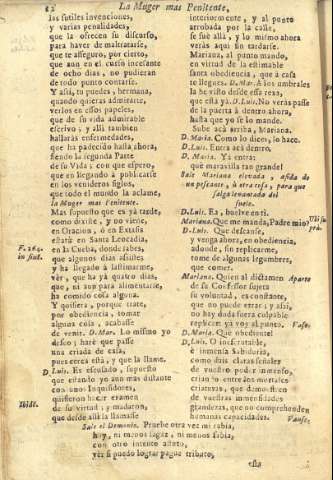 82 La Muger mas Penitente,
las sutiles invenciones,
y varias penalidades,
que la ofrecen su discurso,
para haver de maltratarse,
que te asseguro, por cierto,
que aun en el curso incesante
de ocho dias, no pudieran
de todo punto contarse.
Y assi, tu puedes, hermana,
quando quieras admirarte,
verlos en essos papeles,
que de su vida admirable
escrivo; y alli tambien
hallaràs enfermedades,
que ha padecido hasta ahora,
siendo la segunda Parte
de su Vida; con que espero,
que en llegando à publicarse
en los venideros siglos,
que todo el mundo la aclame,
la Muger mas Penitente.
Mas supuesto que es yà tarde,
como dixiste, y no viene,
en Oracion, ò en Extasis
estarà en Santa Leocadia,
F. 264. en la Cueba, donde sabes,
in fine. que algunos dias assiste,
y ha llegado à lastimarme,
vèr, que ha yà quatro dias,
que, ni aun para alimentarse,
ha comido cosa alguna.
Y quisiera, porque trate,
por obediencia, tomar
alguna cosa, acabasse
de venir. D. Mar. Lo mismo yo
desseo; harè que passe
una criada de casa,
pues cerca està, y que la llame.
D. Luis. Es escusado, supuesto
que estando yo aun mas distante
con unos Inquisidores,
quisieron hacer examen
Ibide. de su virtud; y mandaron,
que desde allà la llamasse
interiormente, y al punto
arrobada por la calle,
se fuè allà, y lo mismo ahora
veràs aqui sin tardarse.
Mariana, al punto mando,
en virtud de la estimable
santa obediencia, que à casa
te llegues. D. Mar. A los umbrales
la he visto desde essa rexa,
que està yà. D. Luis. No veràs passe
de la puerta à dentro ahora,
hasta que yo se lo mande.
Sube acà arriba, Mariana.
D. Maria. Como lo dices, lo hace.
D. Luis. Entra acà dentro.
D. Maria. Yà entra:
què maravilla tan grande!
Sale Mariana elevada, asida de
un pescante, ò otra cosa, para que
salga levantada del
suelo.
D. Luis. Ea, buelve en ti.
Mariana. Què me manda, Padre mio?
D. Luis. Que descanse,
y venga ahora, en obediencia,
adonde, sin replicarme,
tome de algunas legumbres,
que comer.
Mariana. Quien al dictamen Aparte
de su Confessor sujeta
su voluntad, es constante,
que no puede errar; y assi,
no hay duda fuera culpable
replicar: yà voy al punto. Vase.
D. Maria. Què obediente!
D. Luis. O inefable,
è inmensa Sabiduria,
como dais claras señales
de vuestro poder inmenso,
criando entre los mortales
criaturas, que demuestren
de vuestras inmensidades
grandezas, que no comprehenden
humanas capacidades. Vanse.
Sale el Demonio. Pruebe otra vez mi rabia,
hoy, ni menos sagaz, ni menos sabia,
con otro intento astuto,
vèr si puedo lograr pague tributo,
esta